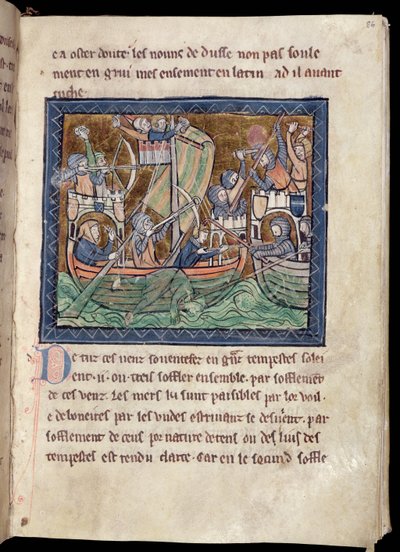 86
ea oster doute. les nouns de dusse non pas soule
ment en griu mes ensement en latin ad il auant
tuche.
De tuz ces uenz souentefez en gñt tempestes solei
ent .ii. ou .treis soffler ensemble. par sofflement
de ces uenz. Les mers ki sunt paisibles par lor uoil.
e deboneires par les undes estriuanz se desuent. par
sofflement de ceus par nature de tens ou des luis des
tempestes est rendu clarte. Car en le secund soffle